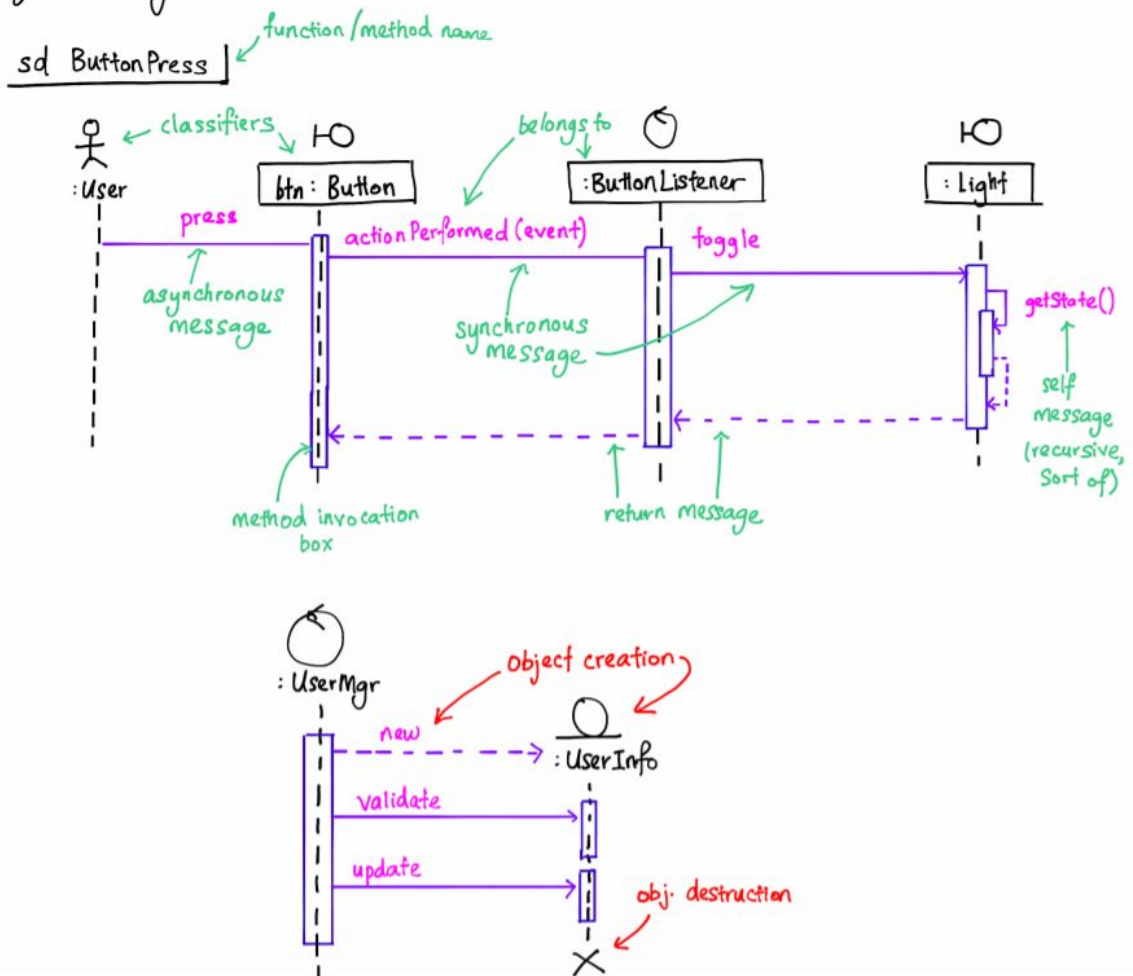 function/method name
sd ButtonPress
classifiers
belongs to
:User
btn: Button
:ButtonListener
: Light
press
actionPerformed (event)
toggle
asynchronous
message
synchronous
message
getState()
self
message
(recursive,
sort of)
method invocation
box
return message
: UserMgr
object creation
new
: UserInfo
validate
update
obj. destruction